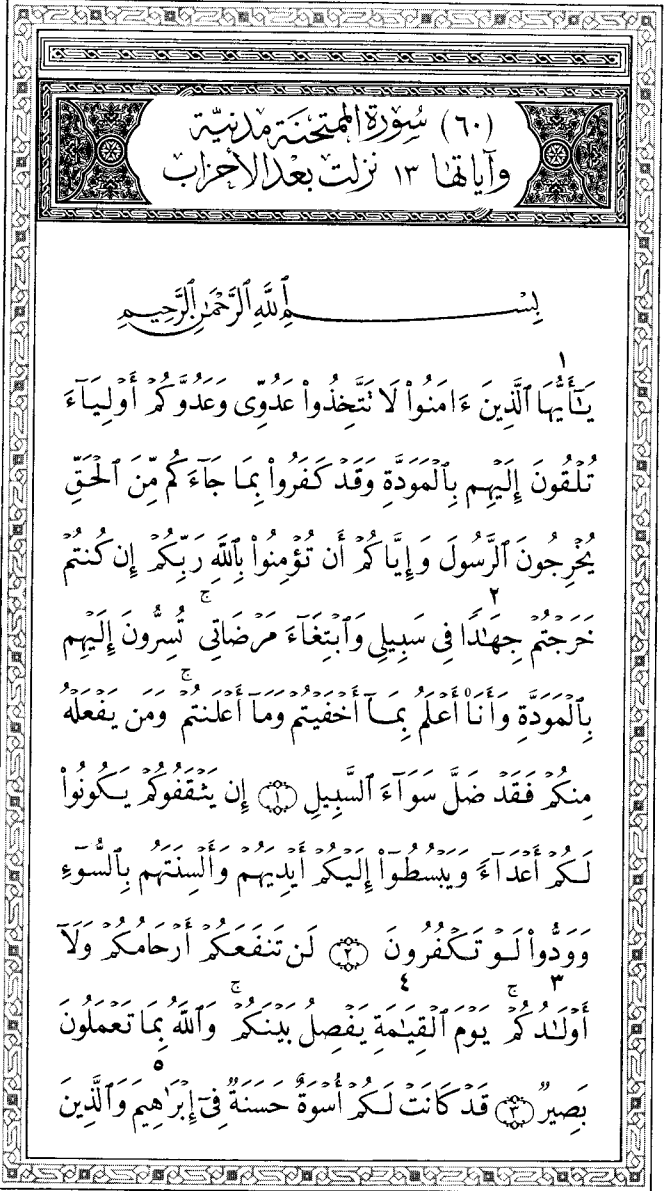 (٦٠) سُورَةُ الممتَحنَة مَدنيَّة
وآياتها ١٣ نزلت بعد الأحزاب
بِسْمِ ٱللَّهِ ٱلرَّحْمَٰنِ ٱلرَّحِيمِ
١
يَـٰٓأَيُّهَا ٱلَّذِينَ ءَامَنُوا۟ لَا تَتَّخِذُوا۟ عَدُوِّى وَعَدُوَّكُمْ أَوْلِيَآءَ
تُلْقُونَ إِلَيْهِم بِٱلْمَوَدَّةِ وَقَدْ كَفَرُوا۟ بِمَا جَآءَكُم مِّنَ ٱلْحَقِّ
يُخْرِجُونَ ٱلرَّسُولَ وَإِيَّاكُمْ أَن تُؤْمِنُوا۟ بِٱللَّهِ رَبِّكُمْ إِن كُنتُمْ
٢
خَرَجْتُمْ جِهَـٰدًا فِى سَبِيلِى وَٱبْتِغَآءَ مَرْضَاتِى ۚ تُسِرُّونَ إِلَيْهِم
بِٱلْمَوَدَّةِ وَأَنَا۠ أَعْلَمُ بِمَآ أَخْفَيْتُمْ وَمَآ أَعْلَنتُمْ ۚ وَمَن يَفْعَلْهُ
مِنكُمْ فَقَدْ ضَلَّ سَوَآءَ ٱلسَّبِيلِ ﴿١﴾ إِن يَثْقَفُوكُمْ يَكُونُوا۟
لَكُمْ أَعْدَآءً وَيَبْسُطُوٓا۟ إِلَيْكُمْ أَيْدِيَهُمْ وَأَلْسِنَتَهُم بِٱلسُّوٓءِ
وَوَدُّوا۟ لَوْ تَكْفُرُونَ ﴿٢﴾ لَن تَنفَعَكُمْ أَرْحَامُكُمْ وَلَآ
٣ ٤
أَوْلَـٰدُكُمْ ۚ يَوْمَ ٱلْقِيَـٰمَةِ يَفْصِلُ بَيْنَكُمْ ۚ وَٱللَّهُ بِمَا تَعْمَلُونَ
٥
بَصِيرٌ ﴿٣﴾ قَدْ كَانَتْ لَكُمْ أُسْوَةٌ حَسَنَةٌ فِىٓ إِبْرَٰهِيمَ وَٱلَّذِينَ